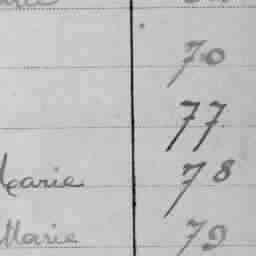 70
77
Marie 78
Marie 79